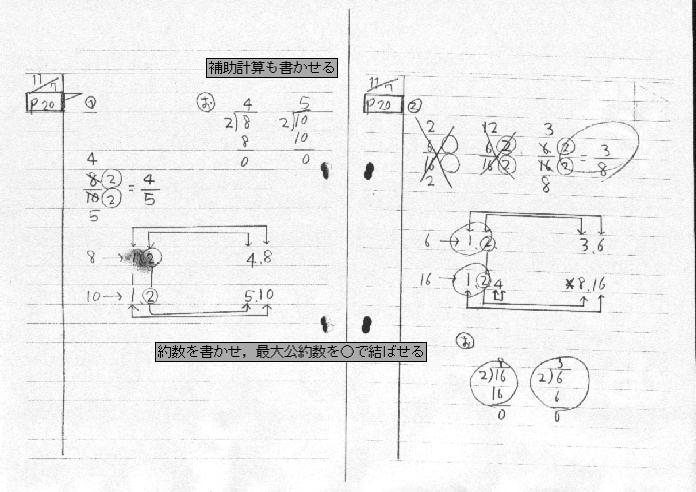 補助計算も書かせる
11/7
P.20 ①
お.
4
2)8
8
0
5
2)10
10
0
4
8 ②
10 ② = 4/5
5
8 → 1 ② 4.8
10 → 1.② 5.10
約数を書かせ，最大公約数を○で結ばせる
11/7
P.20 ②
2
6
16
2
12
6 ②
16 ②
3
6 ②
16 ② = 3/8
8
6 → 1.② 3.6
16 → 1.② 4 8.16
お
8
2)16
16
0
3
2)6
6
0